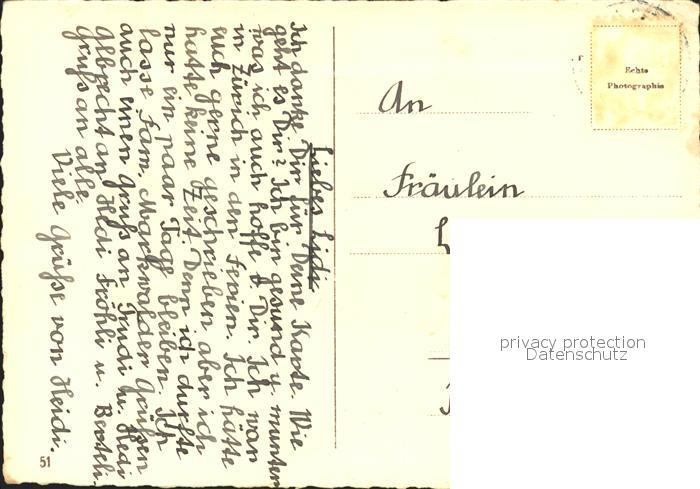 Liebes Lydi
Ich danke Dir für Deine Karte. Wie
geht es Dir? Ich bin gesund u. munter
was ich auch hoffe v. Dir. Ich war
in Zürich in den Ferien. Ich hätte
euch gerne geschrieben aber ich
hatte keine Zeit. Denn ich durfte
nur ein paar Tage bleiben. Ich
lasse Fam. Markwalder Grüssen
auch einen Gruss an Trudi u. Hedi
Albrecht an Hedi Fröhli u. Berteli.
Gruss an alle.
Viele Grüsse von Heidi.
51
Echte
Photographie
An
Fräulein
privacy protection
Datenschutz